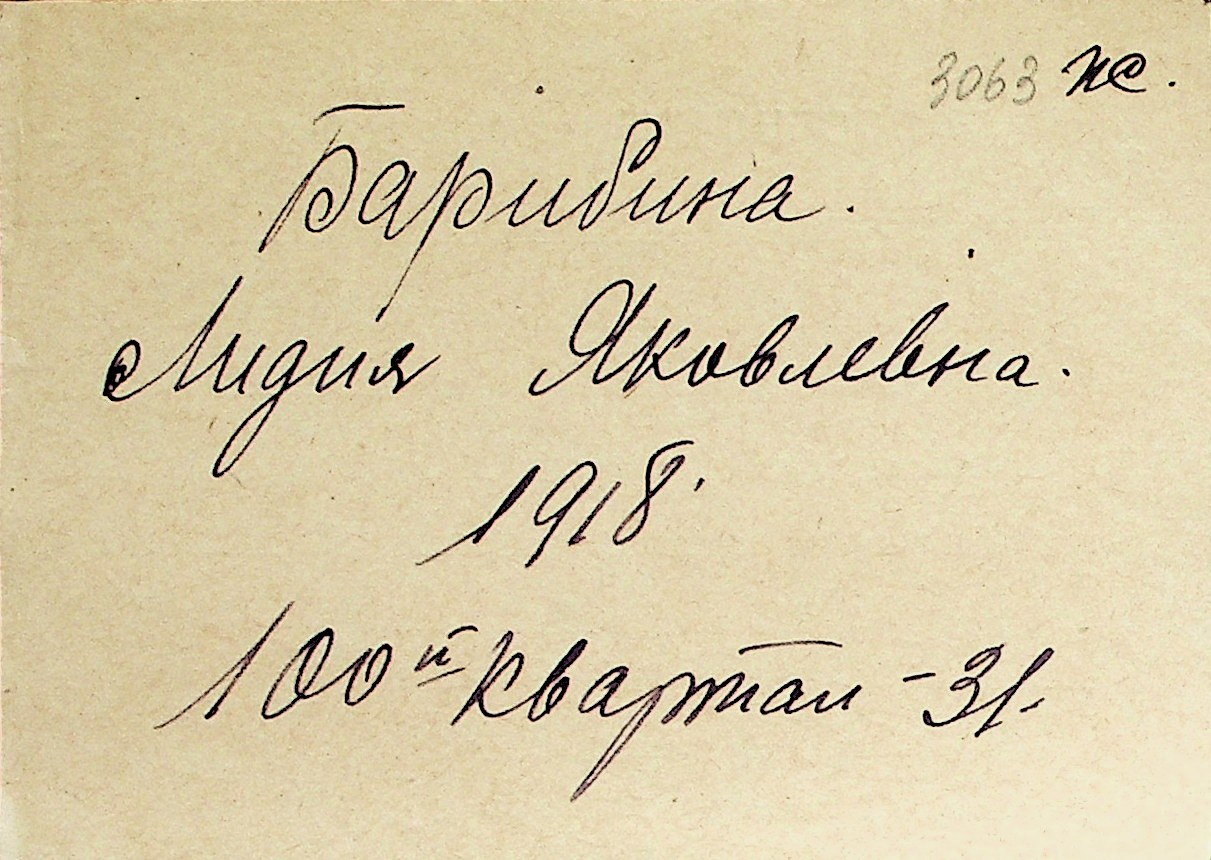 3063 пс.
Барибина.
Лидия Яковлевна.
1918.
100й квартал - 31.